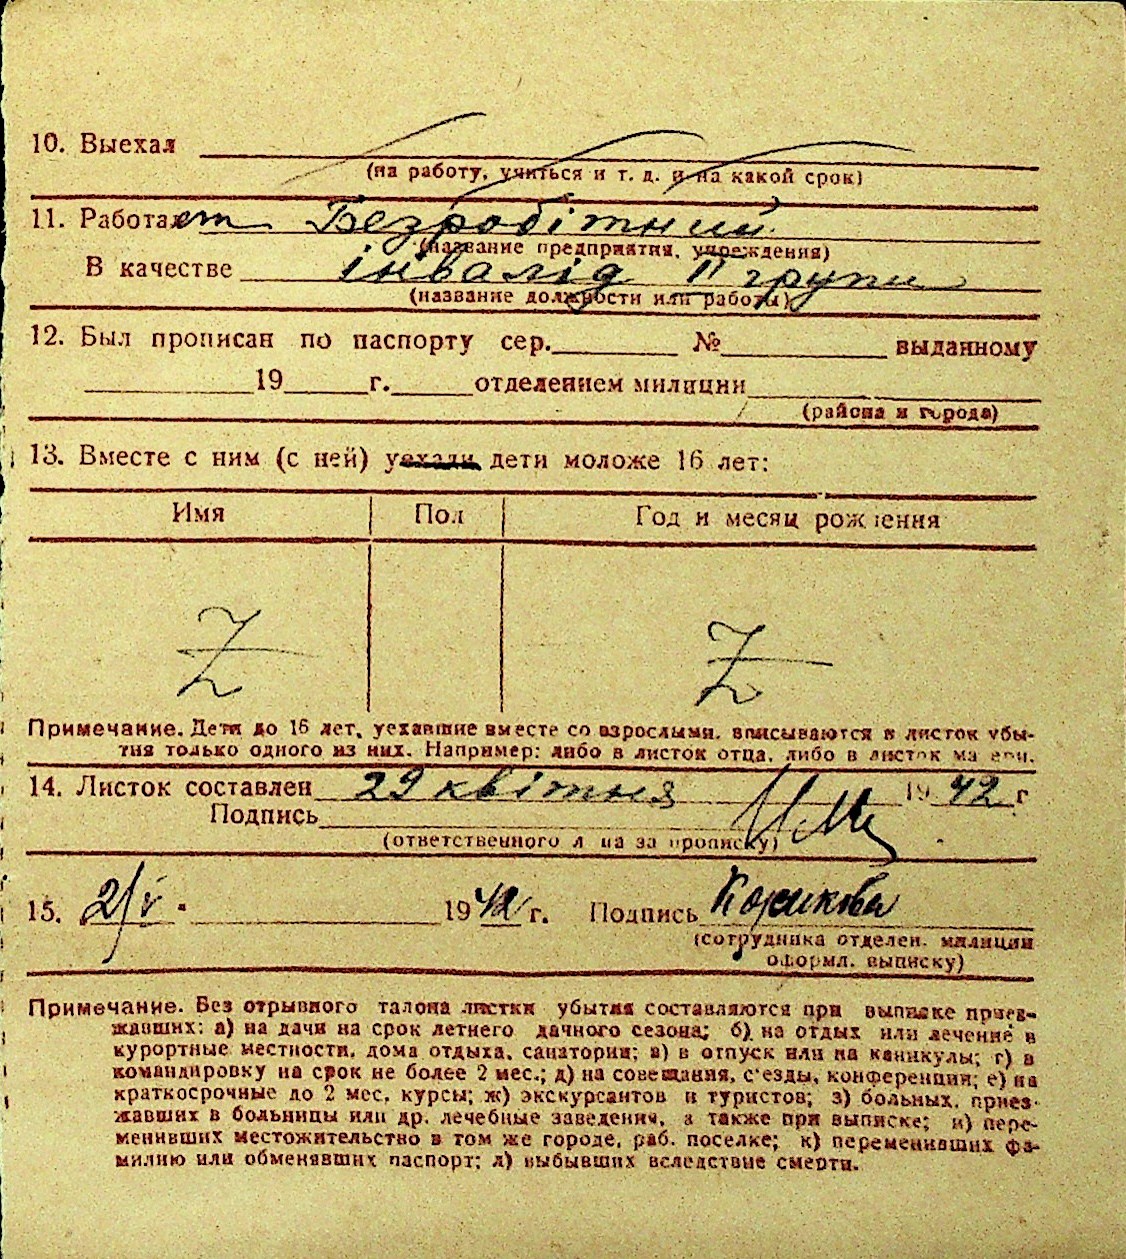 10. Выехал
(на работу, учиться и т. д. и на какой срок)
11. Работает Безробітний
(название предприятия, учреждения)
В качестве інвалід II групи
(название должности или работы)
12. Был прописан по паспорту сер. № выданному
19 г. отделением милиции
(района и города)
13. Вместе с ним (с ней) уехали дети моложе 16 лет:
Имя Пол Год и месяц рождения
Z Z
Примечание. Дети до 16 лет, уехавшие вместе со взрослыми, вписываются в листок убы-
тия только одного из них. Например: либо в листок отца, либо в листок матери.
14. Листок составлен 29 квітня 1942 г
Подпись
(ответственного лица за прописку)
15. 2/V 1942 г. Подпись
(сотрудника отделен. милиции
оформл. выписку)
Примечание. Без отрывного талона листки убытия составляются при выписке приез-
жавших: а) на дачи на срок летнего дачного сезона; б) на отдых или лечение в
курортные местности, дома отдыха, санатории; в) в отпуск или на каникулы; г) в
командировку на срок не более 2 мес.; д) на совещания, с'езды, конференции; е) на
краткосрочные до 2 мес. курсы; ж) экскурсантов и туристов; з) больных, приез-
жавших в больницы или др. лечебные заведения, а также при выписке; и) пере-
менивших местожительство в том же городе, раб. поселке; к) переменивших фа-
милию или обменявших паспорт; л) выбывших вследствие смерти.